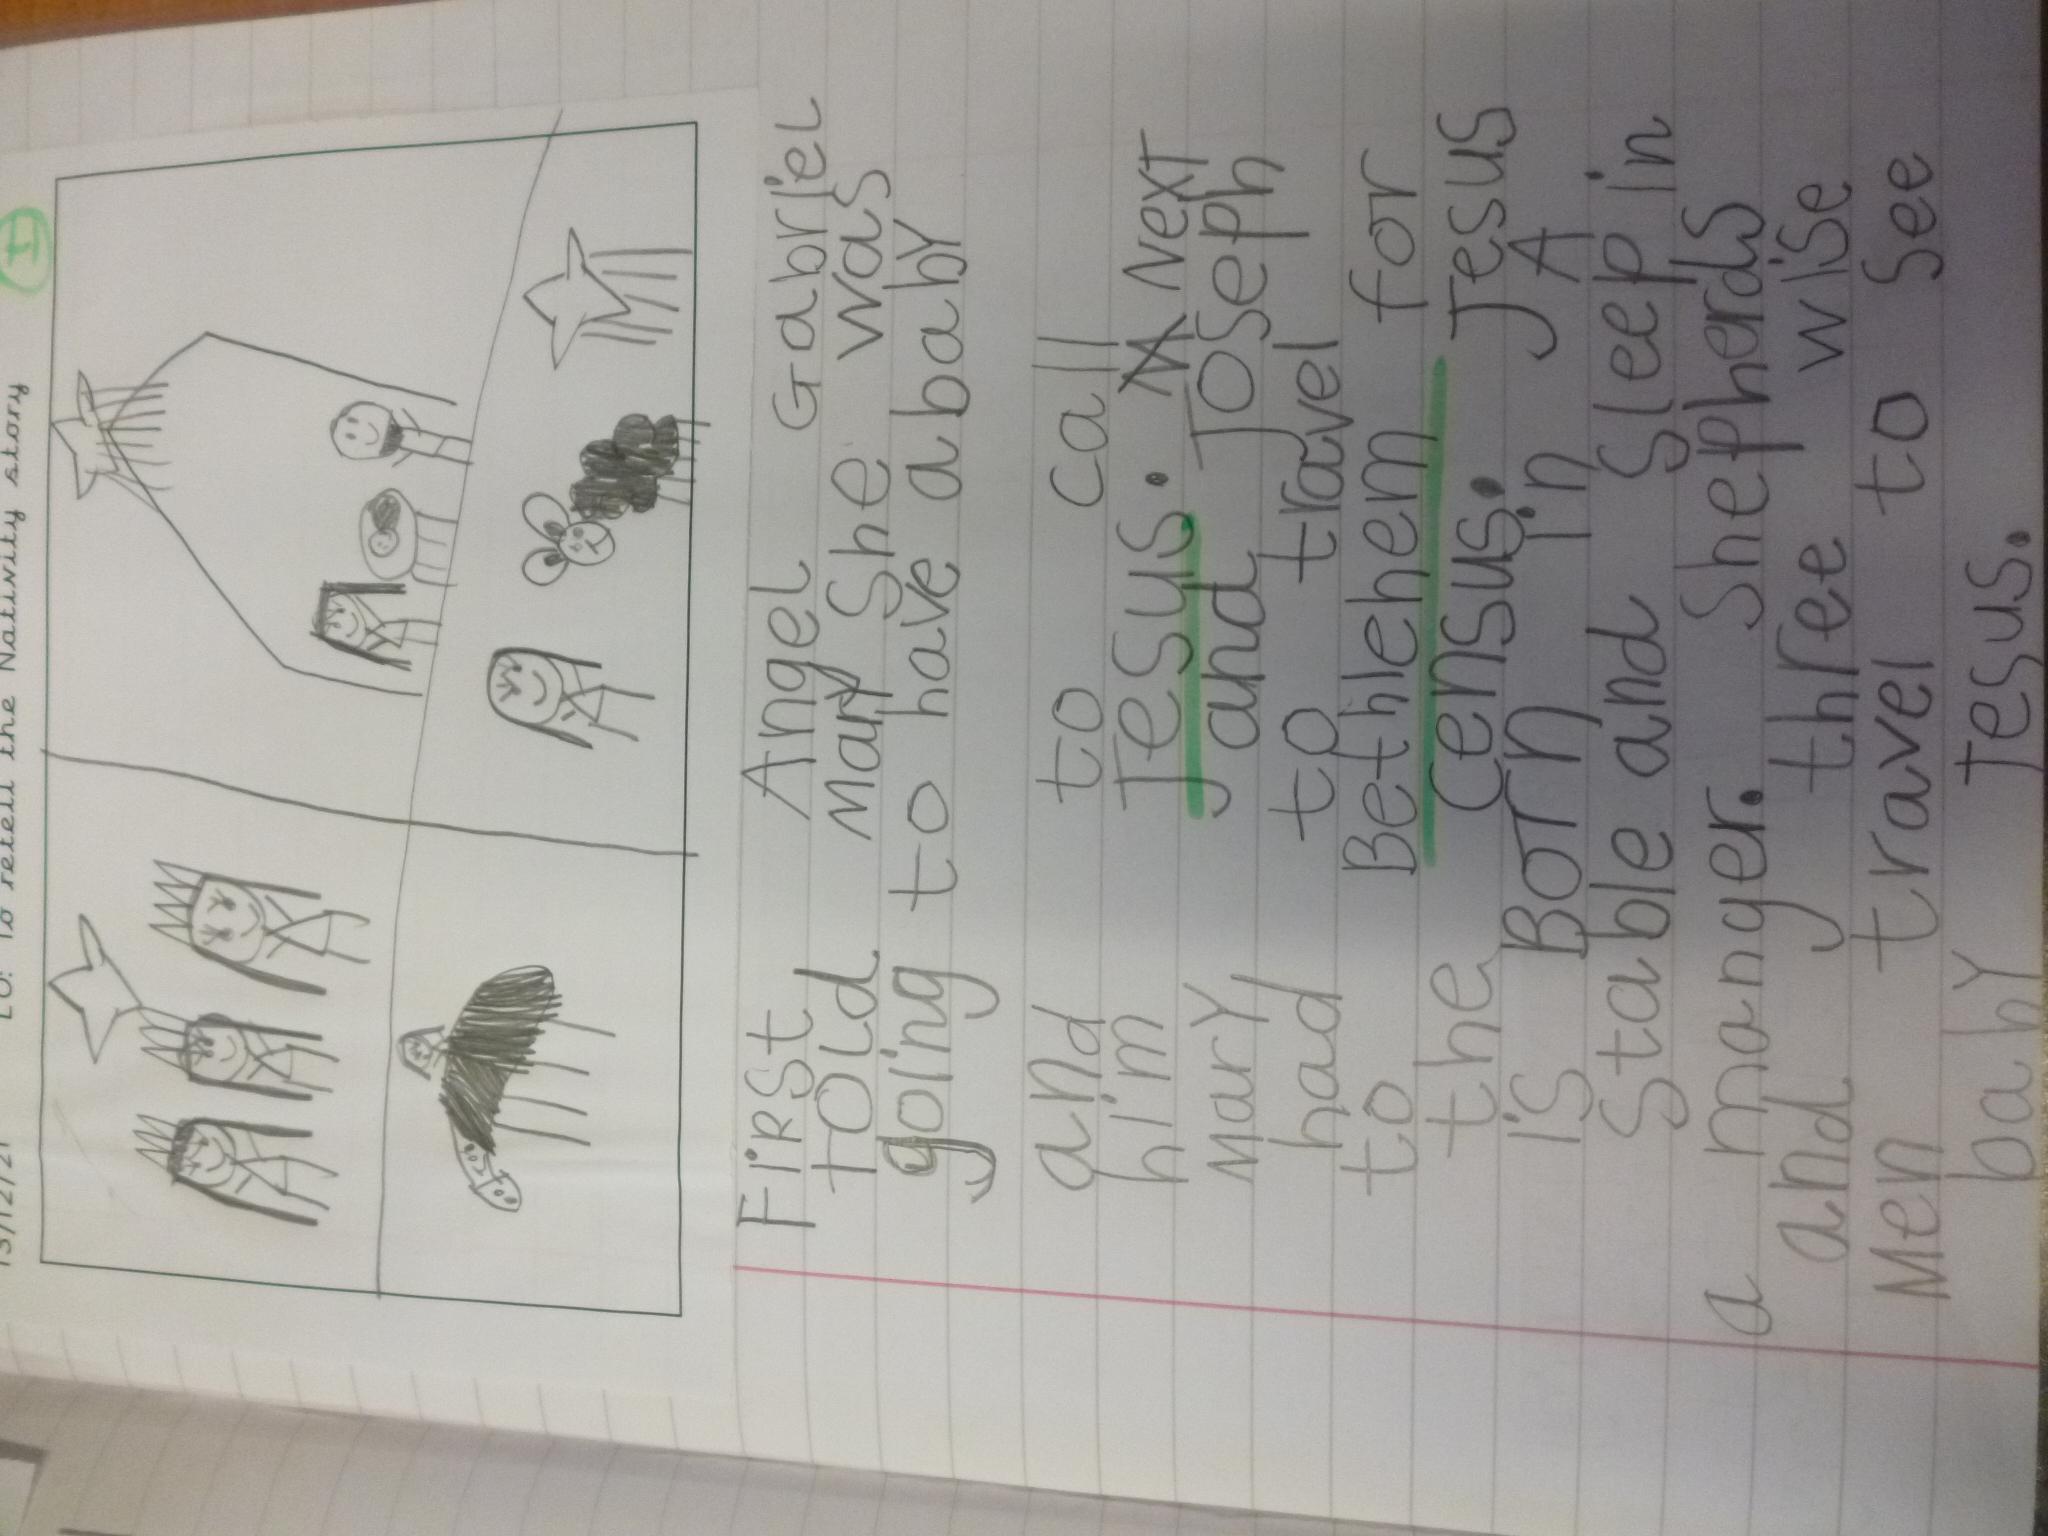 13/12/21 LO: To retell the Nativity story
I
First Angel Gabriel
told Mary She was
going to have a baby
and to call
him Jesus. Next
Mary and Joseph
had to travel
to Bethlehem for
the Census. Jesus
is Born in A
Stable and Sleep in
a manger. Shepherds
and three wise
Men travel to see
baby Jesus.